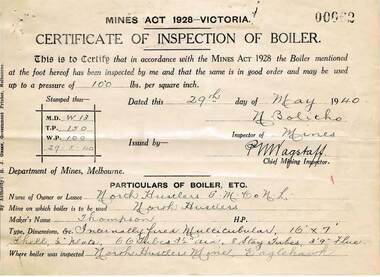 MINES ACT 1928-VICTORIA.
CERTIFICATE OF INSPECTION OF BOILER.
This is to Certify that in accordance with the MINES ACT 1928 the Boiler mentioned
at the foot hereof has been inspected by me and that the same is in good order and may be used
up to a pressure of 100 lbs. per square inch.
Stamped thus- Dated this 29th day of May 1940
M.D. W 13
T.P. 150
W.P. 100
29.5.40
Inspector of Mines
Issued by
Chief Mining Inspector.
Department of Mines, Melbourne.
PARTICULARS OF BOILER, ETC.
Name of Owner or Lessee North Hustlers G. M. Co N. L.
Mine on which boiler is to be used North Hustlers
Maker's Name Thompson H.P.
Type, Dimensions, Gr. Internally fired Multitubular, 16' x 7'
Shell, Plate, 66 Tubes dia, 8 Stay Tubes, Flue
Where boiler was inspected North Hustlers Mine Eaglehawk